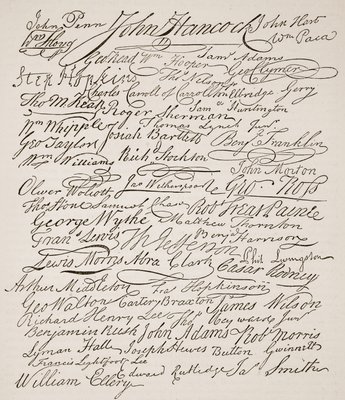 John Penn John Hancock John Hart
Wm Floyd Wm Paca
Geo Read Wm Hooper Saml Adams
Step Hopkins Geo Clymer
Thos Nelson jr
Charles Carroll of Carrollton Elbridge Gerry
Tho M:Kean Roger Sherman Saml Huntington
Wm Whipple Thomas Lynch Junr
Josiah Bartlett Benj Franklin
Geo Taylor
Wm Williams Richd Stockton
John Morton
Oliver Wolcott Jno Witherspoon Geo Ross
Thos Stone Samuel Chase Robt Treat Paine
George Wythe Matthew Thornton
Frans Lewis Th Jefferson Benj Harrison
Lewis Morris Abra Clark Phil Livingston
Caesar Rodney
Arthur Middleton Fras Hopkinson
Geo Walton Carter Braxton James Wilson
Richard Henry Lee Thos Heyward Junr
Benjamin Rush John Adams Robt Morris
Lyman Hall Joseph Hewes Button Gwinnett
Francis Lightfoot Lee
William Ellery Edward Rutledge Jas Smith